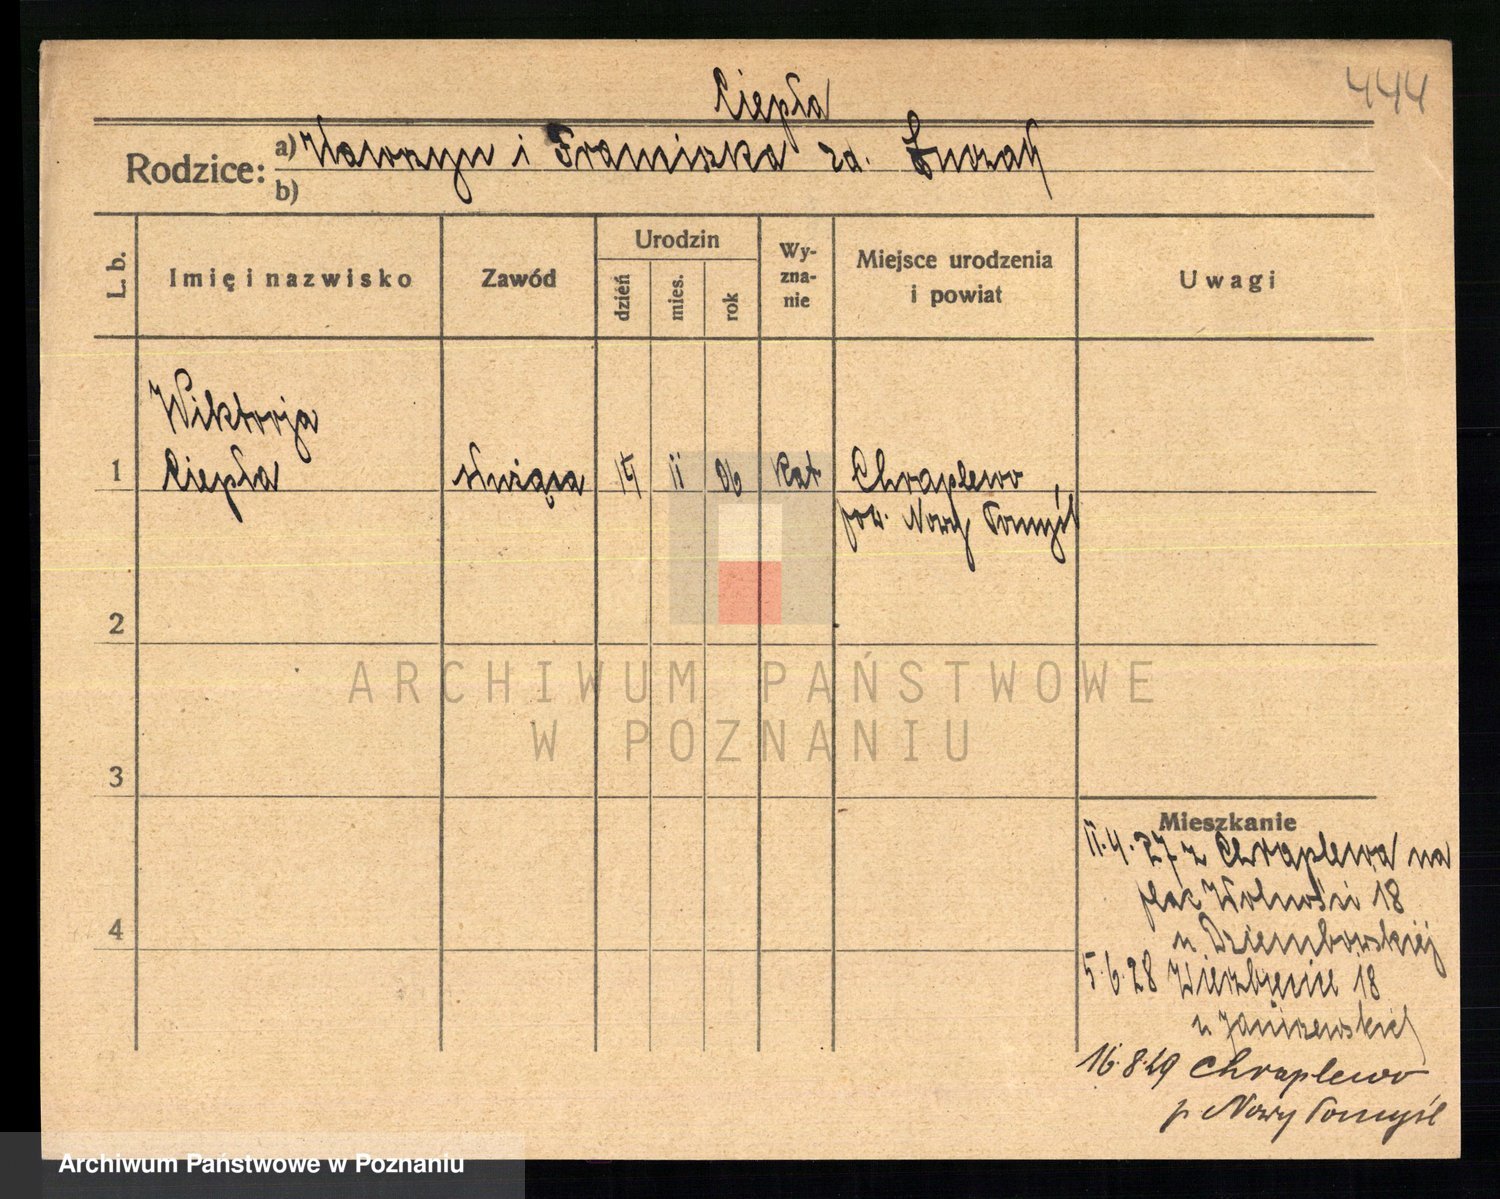 Ciepła
444
Rodzice: a) Wawrzyn i Franciszka za.
b)
L. b. Imię i nazwisko Zawód Urodzin dzień mies. rok Wyznanie Miejsce urodzenia i powiat Uwagi
Wiktorja
1 Ciepła służąca 14 II 06 kat Chraplewo,
pow. Nowy Tomyśl
2
ARCHIWUM PAŃSTWOWE
W POZNANIU
3
Mieszkanie
11.4.27 z Chraplewa na
plac Wolności 18
u Dziembowskiej
4
5.6.28 Wierzbięcice 18
u Janiszewskiej
16.8.29 Chraplewo
p Nowy Tomyśl
Archiwum Państwowe w Poznaniu